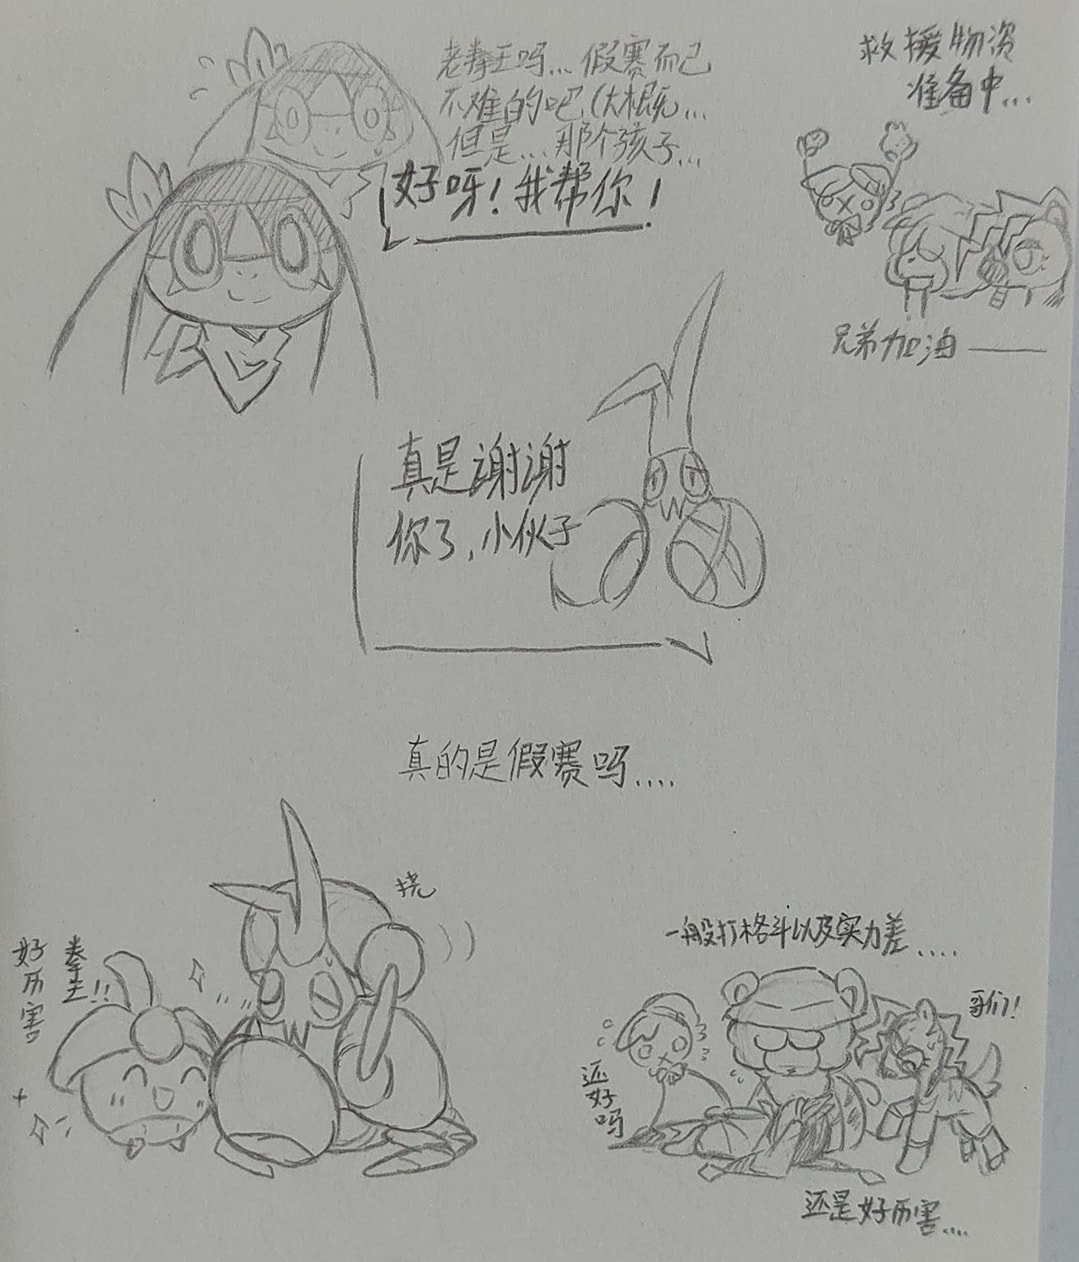 老拳王吗...假赛而已
不难的吧(大概...
但是...那个孩子...
好呀！我帮你！
救援物资
准备中...
兄弟加油——
真是谢谢
你了，小伙子
真的是假赛吗....
挠
拳王!!
好厉害
一般打格斗以及实力差....
哥们!
还好吗
还是好厉害....